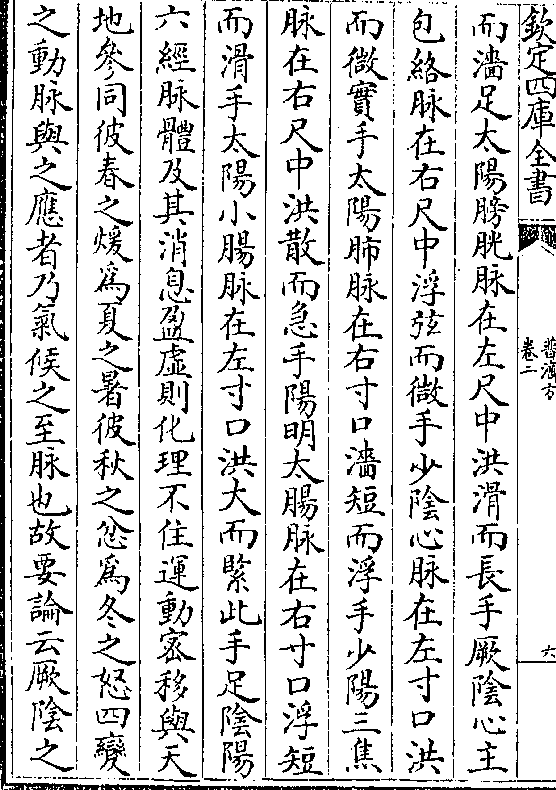 欽定四庫全書
普濟方
卷二
六
而濇足太陽膀胱脉在左尺中洪滑而長手厥陰心主
包絡脉在右尺中浮弦而微手少陰心脉在左寸口洪
而微實手太陽肺脉在右寸口濇短而浮手少陽三焦
脉在右尺中洪散而急手陽明大腸脉在右寸口浮短
而滑手太陽小腸脉在左寸口洪大而緊此手足陰陽
六經脉體及其消息盈虚則化理不住運動宻移與天
地參同彼春之煖為夏之暑彼秋之忿為冬之怒四變
之動脉與之應者乃氣候之至脉也故要論云厥陰之